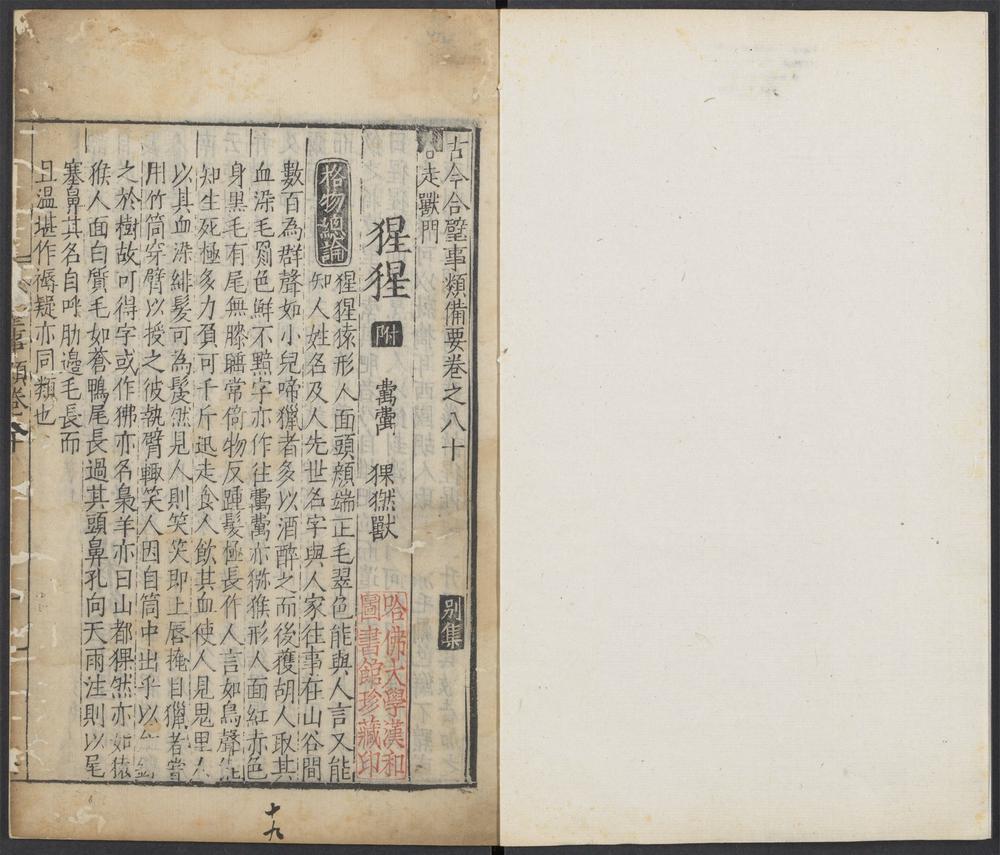 古今合璧事類備要卷之八十
別集
走獸門
猩猩 附 狒狒 猓㹱獸
格物總論
猩猩猿形人面頭顏端正毛翠色能與人言又能
知人姓名及人先世名字與人家往事在山谷間
數百為群聲如小兒啼獵者多以酒醉之而後獲胡人取其
血染毛罽色鮮不黯字亦作往𤟤𤟤亦獼猴形人面紅赤色
身黑毛有尾無膝睡常倚物反踵髮極長作人言如鳥聲能
知生死極多力負可千斤迅走食人飲其血使人見鬼里人
以其血染緋髮可為髲然見人則笑笑即上唇掩目獵者嘗
用竹筒穿臂以授之彼執臂輙笑人因自筒中出手以
之於樹故可得字或作狒亦名梟羊亦曰山都猓然亦如猿
猴人面白質毛如蒼鴨尾長過其頭鼻孔向天雨注則以尾
塞鼻其名自呼肋邊毛長而
且温堪作褥疑亦同類也
哈佛大學漢和
圖書館珍藏印
十九